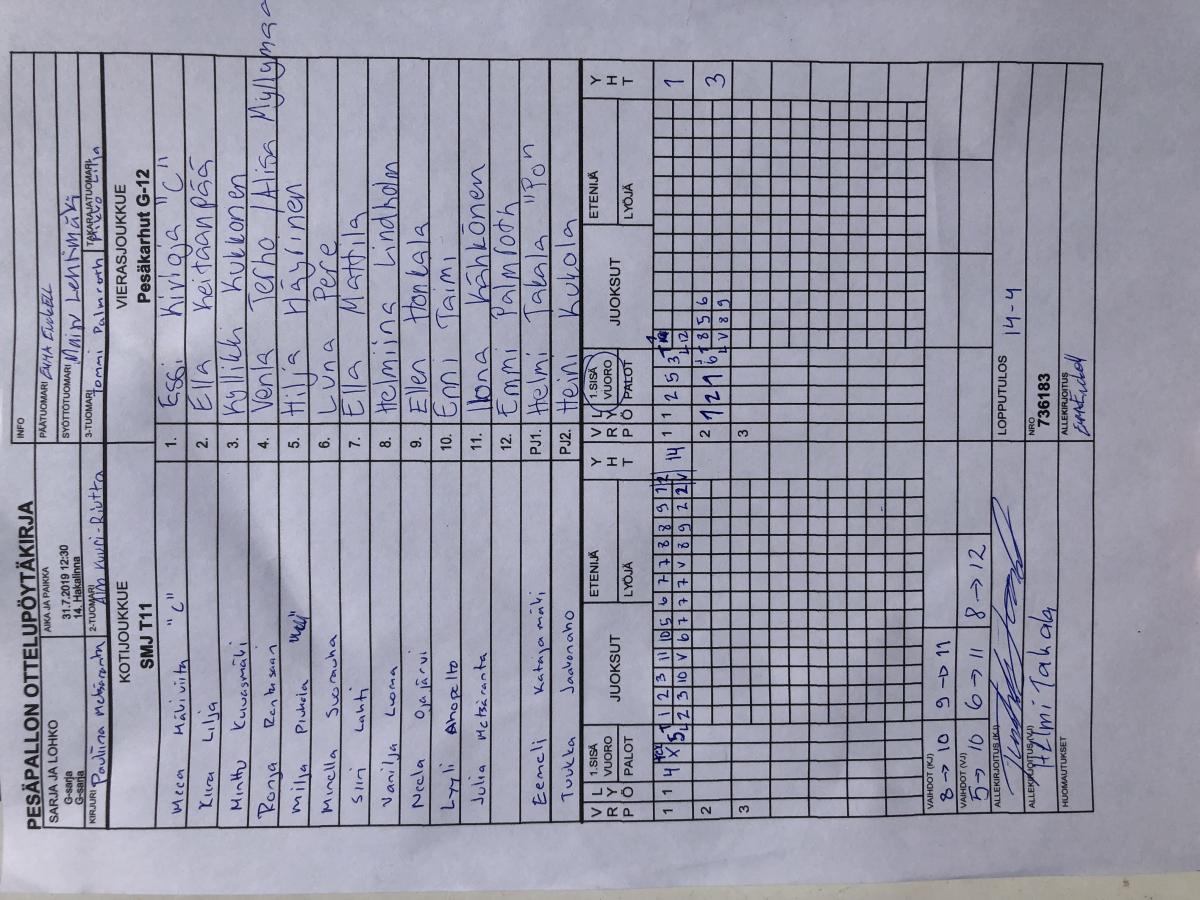 PESÄPALLON OTTELUPÖYTÄKIRJA
SARJA JA LOHKO
G-sarja
G-sarja
AIKA JA PAIKKA
31.7.2019 12:30
14. Hakalinna
INFO
PÄÄTUOMARI
SYÖTTÖTUOMARI
KIRJURI Pauliina Metsäranta
2-TUOMARI
3-TUOMARI Tommi Palmroth
TAKARAJATUOMARI
KOTIJOUKKUE
SMJ T11
VIERASJOUKKUE
Pesäkarhut G-12
Meea Mäkiviita "C"
1. Essi Kivioja "C"
Kiira Lilja
2. Ella Keitaanpää
Minttu Kuivasmäki
3. Kyllikki Kukkonen
Ronja Rantasaari
4. Venla Terho / Alisa Myllymaa
Milja Piuhola
5. Hilja Häyrinen
Minella Suorauha
6. Luna Pere
Siiri Lahti
7. Ella Mattila
Vanilja Luoma
8. Helmiina Lindholm
Neela Ojajärvi
9. Ellen Honkala
Lyyli Ahopelto
10. Enni Taimi
Julia Metsäranta
11. Ilona Kähkönen
12. Emmi Palmroth
Eemeli Katajamäki
PJ1. Helmi Takala "PJ"
Tuukka Jaakonaho
PJ2. Heini Kukola
V R P
L Y Ö
1.SISÄ VUORO PALOT
JUOKSUT
ETENIJÄ
LYÖJÄ
Y H T
V R P
L Y Ö
1.SISÄ VUORO PALOT
JUOKSUT
ETENIJÄ
LYÖJÄ
Y H T
1 1 4 X 5 T 1 2 3 11 10 5 6 7 7 8 8 9 1 2 14
L 2 3 10 V 6 7 7 V 8 9 2 2 V
1 1 2 5 3 1
L 12
2
2 1 2 1 6 T 8 5 6 3
L V 8 9
3
3
VAIHDOT (KJ)
8 → 10 9 → 11
VAIHDOT (VJ)
5 → 10 6 → 11 8 → 12
ALLEKIRJOITUS (KJ)
LOPPUTULOS 14-4
ALLEKIRJOITUS (VJ)
Helmi Takala
NRO
736183
HUOMAUTUKSET
ALLEKIRJOITUS